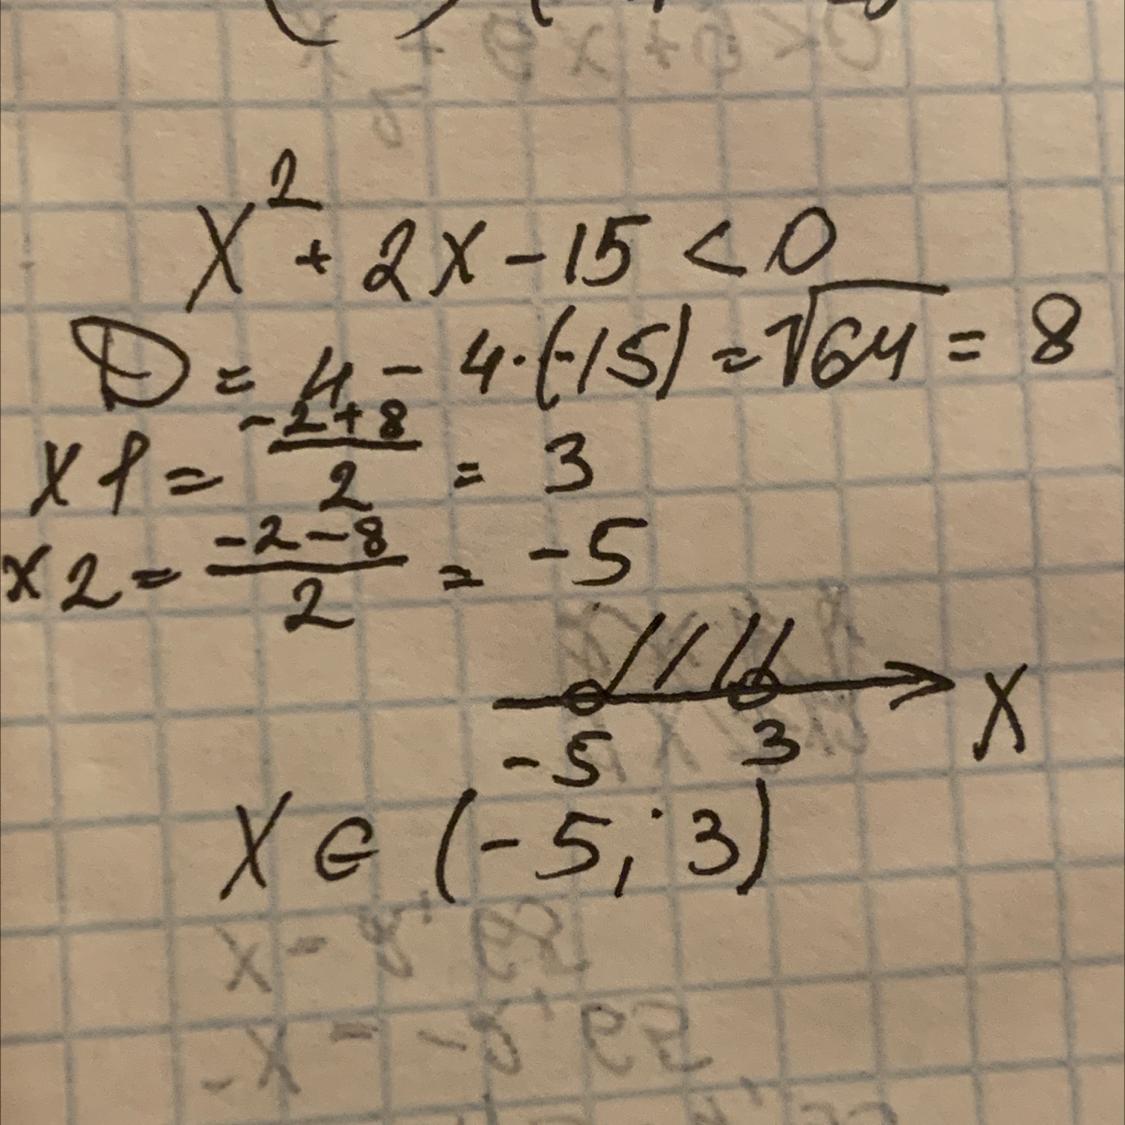 x² + 2x - 15 < 0
D = 4 - 4·(-15) = √64 = 8
x1 = (-2+8)/2 = 3
x2 = (-2-8)/2 = -5
-5 3 X
X ∈ (-5; 3)